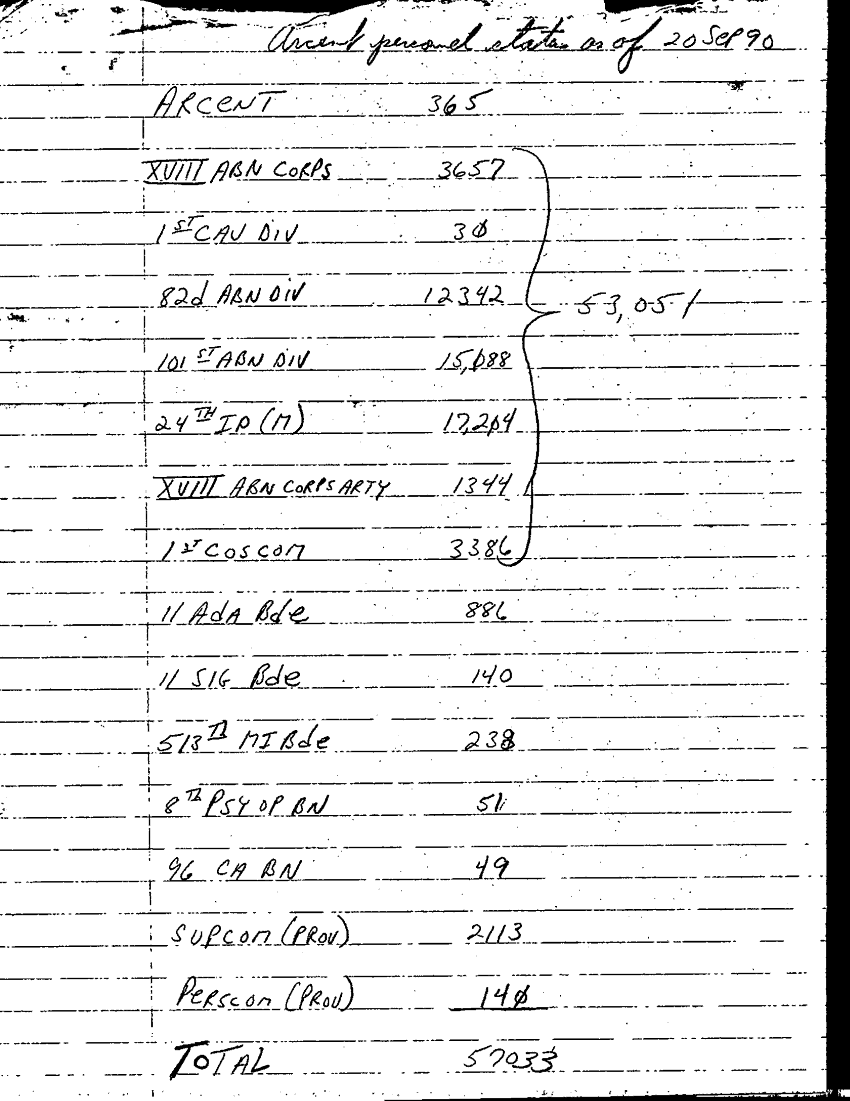 Arcent personel status as of 20 Sep 90
ARCENT 365
XVIII ABN CORPS 3657
1ST CAV DIV 30
82d ABN DIV 12342 53,051
101ST ABN DIV 15,088
24TH ID (M) 17,204
XVIII ABN CORPS ARTY 1344
1ST COSCOM 3386
11 AdA Bde 886
11 SIG Bde 140
513TH MI Bde 238
8TH PSY OP BN 51
96 CA BN 49
SUPCOM (PROV) 2113
PERSCOM (PROV) 140
TOTAL 57033